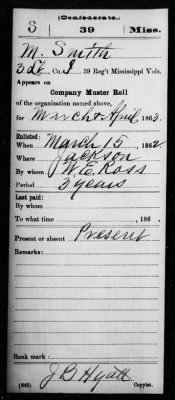 (Confederate.)
S 39 Miss.
M. Smith
3d Lt Co. I, 39 Reg't Mississippi Vols.
Appears on
Company Muster Roll
of the organization named above,
for March & April, 1863.
Enlisted:
When March 15, 1862
Where Jackson
By whom W. E. Ross
Period 3 years
Last paid:
By whom
To what time , 186 .
Present or absent Present
Remarks:
Book mark:
J B Hyatt
(642) Copyist.